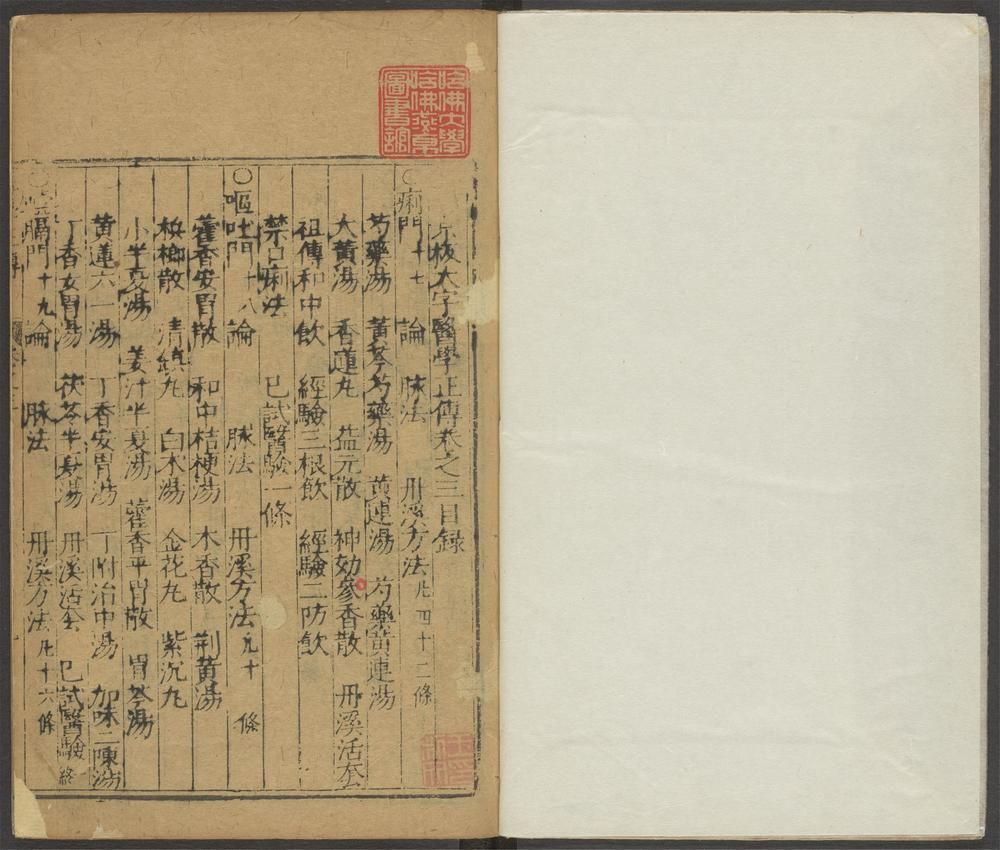 哈佛大學
哈佛燕京
圖書館
京板大字醫學正傳卷之三目録
○痢門十七 論 脉法 丹溪方法凡四十二條
芍藥湯 黄芩芍藥湯 黄連湯 芍藥黄連湯
大黄湯 香蓮丸 益元散 神効參香散 丹溪活套
祖傳和中飲 經驗三根飲 經驗二防飲
禁口痢法 已試醫驗一條
○嘔吐門十八 論 脉法 丹溪方法凡十 條
藿香安胃散 和中桔梗湯 木香散 荆黄湯
檳榔散 清鎮丸 白术湯 金花丸 紫沉丸
小半夏湯 姜汁半夏湯 藿香平胃散 胃苓湯
黄連六一湯 丁香安胃湯 丁附治中湯 加味二陳湯
丁香安胃湯 茯苓半夏湯 丹溪活套 已試醫驗
膈門十九 論 脉法 丹溪方法凡十六條